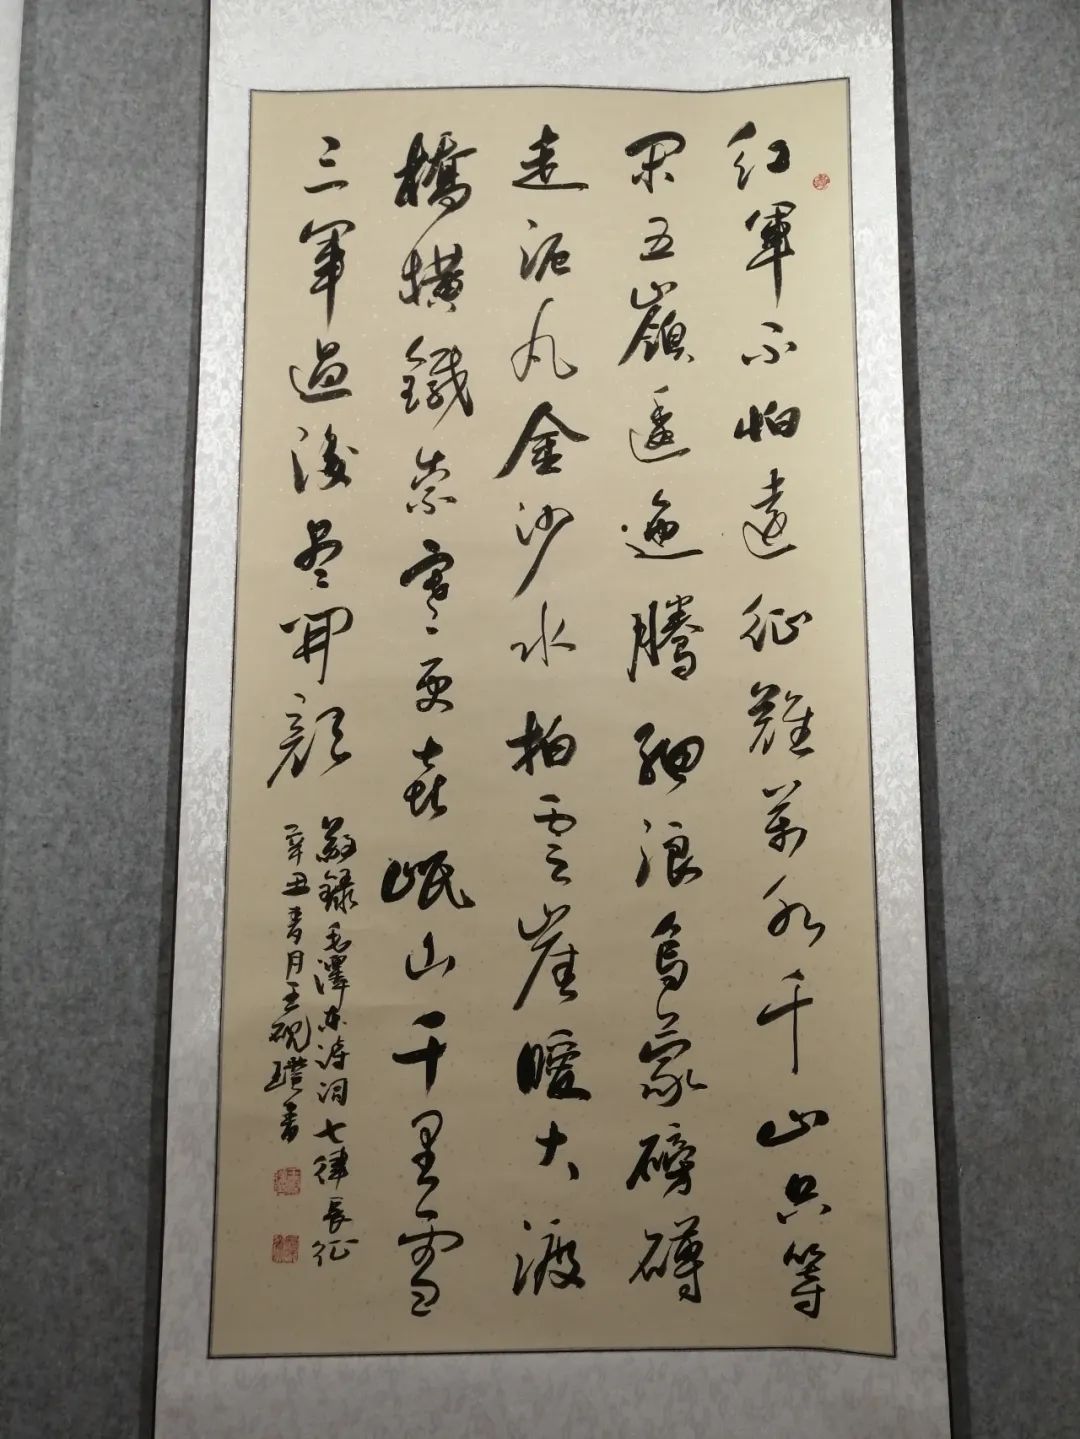 紅軍不怕遠征難萬水千山只等
閑五嶺逶迤騰細浪烏蒙磅礴
走泥丸金沙水拍雲崖暖大渡
橋橫鐵索寒更喜岷山千里雪
三軍過後盡開顏
敬錄毛澤东詩詞七律長征
辛丑春月王硯璞書